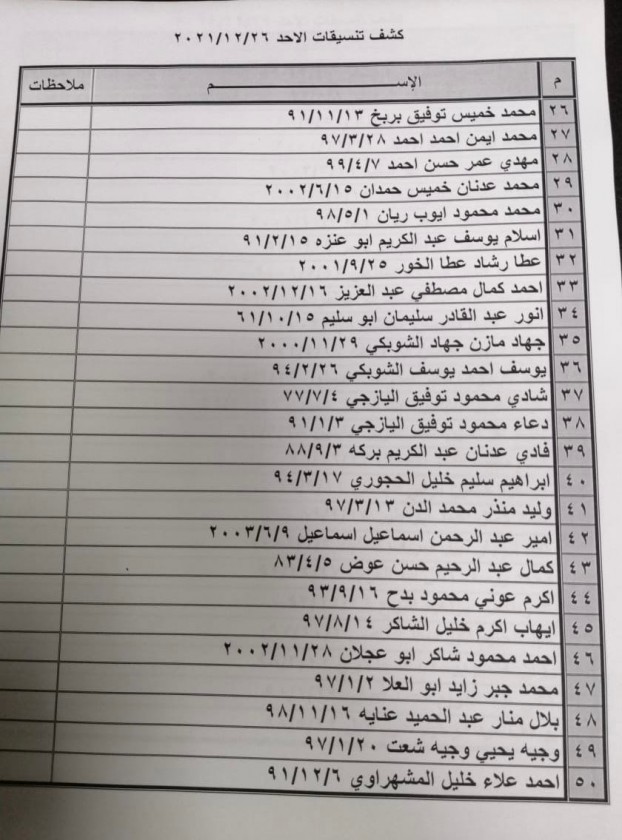 كشف تنسيقات الاحد ٢٠٢١/١٢/٢٦
م الإســـــم ملاحظات
٢٦ محمد خميس توفيق بربخ ٩١/١١/١٣
٢٧ محمد ايمن احمد احمد ٩٧/٣/٢٨
٢٨ مهدي عمر حسن احمد ٩٩/٤/٧
٢٩ محمد عدنان خميس حمدان ٢٠٠٢/٦/١٥
٣٠ محمد محمود ايوب ريان ٩٨/٥/١
٣١ اسلام يوسف عبد الكريم ابو عنزه ٩١/٢/١٥
٣٢ عطا رشاد عطا الخور ٢٠٠١/٩/٢٥
٣٣ احمد كمال مصطفي عبد العزيز ٢٠٠٢/١٢/١٦
٣٤ انور عبد القادر سليمان ابو سليم ٦١/١٠/١٥
٣٥ جهاد مازن جهاد الشوبكي ٢٠٠٠/١١/٢٩
٣٦ يوسف احمد يوسف الشوبكي ٩٤/٢/٢٦
٣٧ شادي محمود توفيق اليازجي ٧٧/٧/٤
٣٨ دعاء محمود توفيق اليازجي ٩١/١/٣
٣٩ فادي عدنان عبد الكريم بركه ٨٨/٩/٣
٤٠ ابراهيم سليم خليل الحجوري ٩٤/٣/١٧
٤١ وليد منذر محمد الدن ٩٧/٣/١٣
٤٢ امير عبد الرحمن اسماعيل اسماعيل ٢٠٠٣/٦/٩
٤٣ كمال عبد الرحيم حسن عوض ٨٣/٤/٥
٤٤ اكرم عوني محمود بدح ٩٣/٩/١٦
٤٥ ايهاب اكرم خليل الشاكر ٩٧/٨/١٤
٤٦ احمد محمود شاكر ابو عجلان ٢٠٠٢/١١/٢٨
٤٧ محمد جبر زايد ابو العلا ٩٧/١/٢
٤٨ بلال منار عبد الحميد عنايه ٩٨/١١/١٦
٤٩ وجيه يحيي وجيه شعت ٩٧/١/٢٠
٥٠ احمد علاء خليل المشهراوي ٩١/١٢/٦